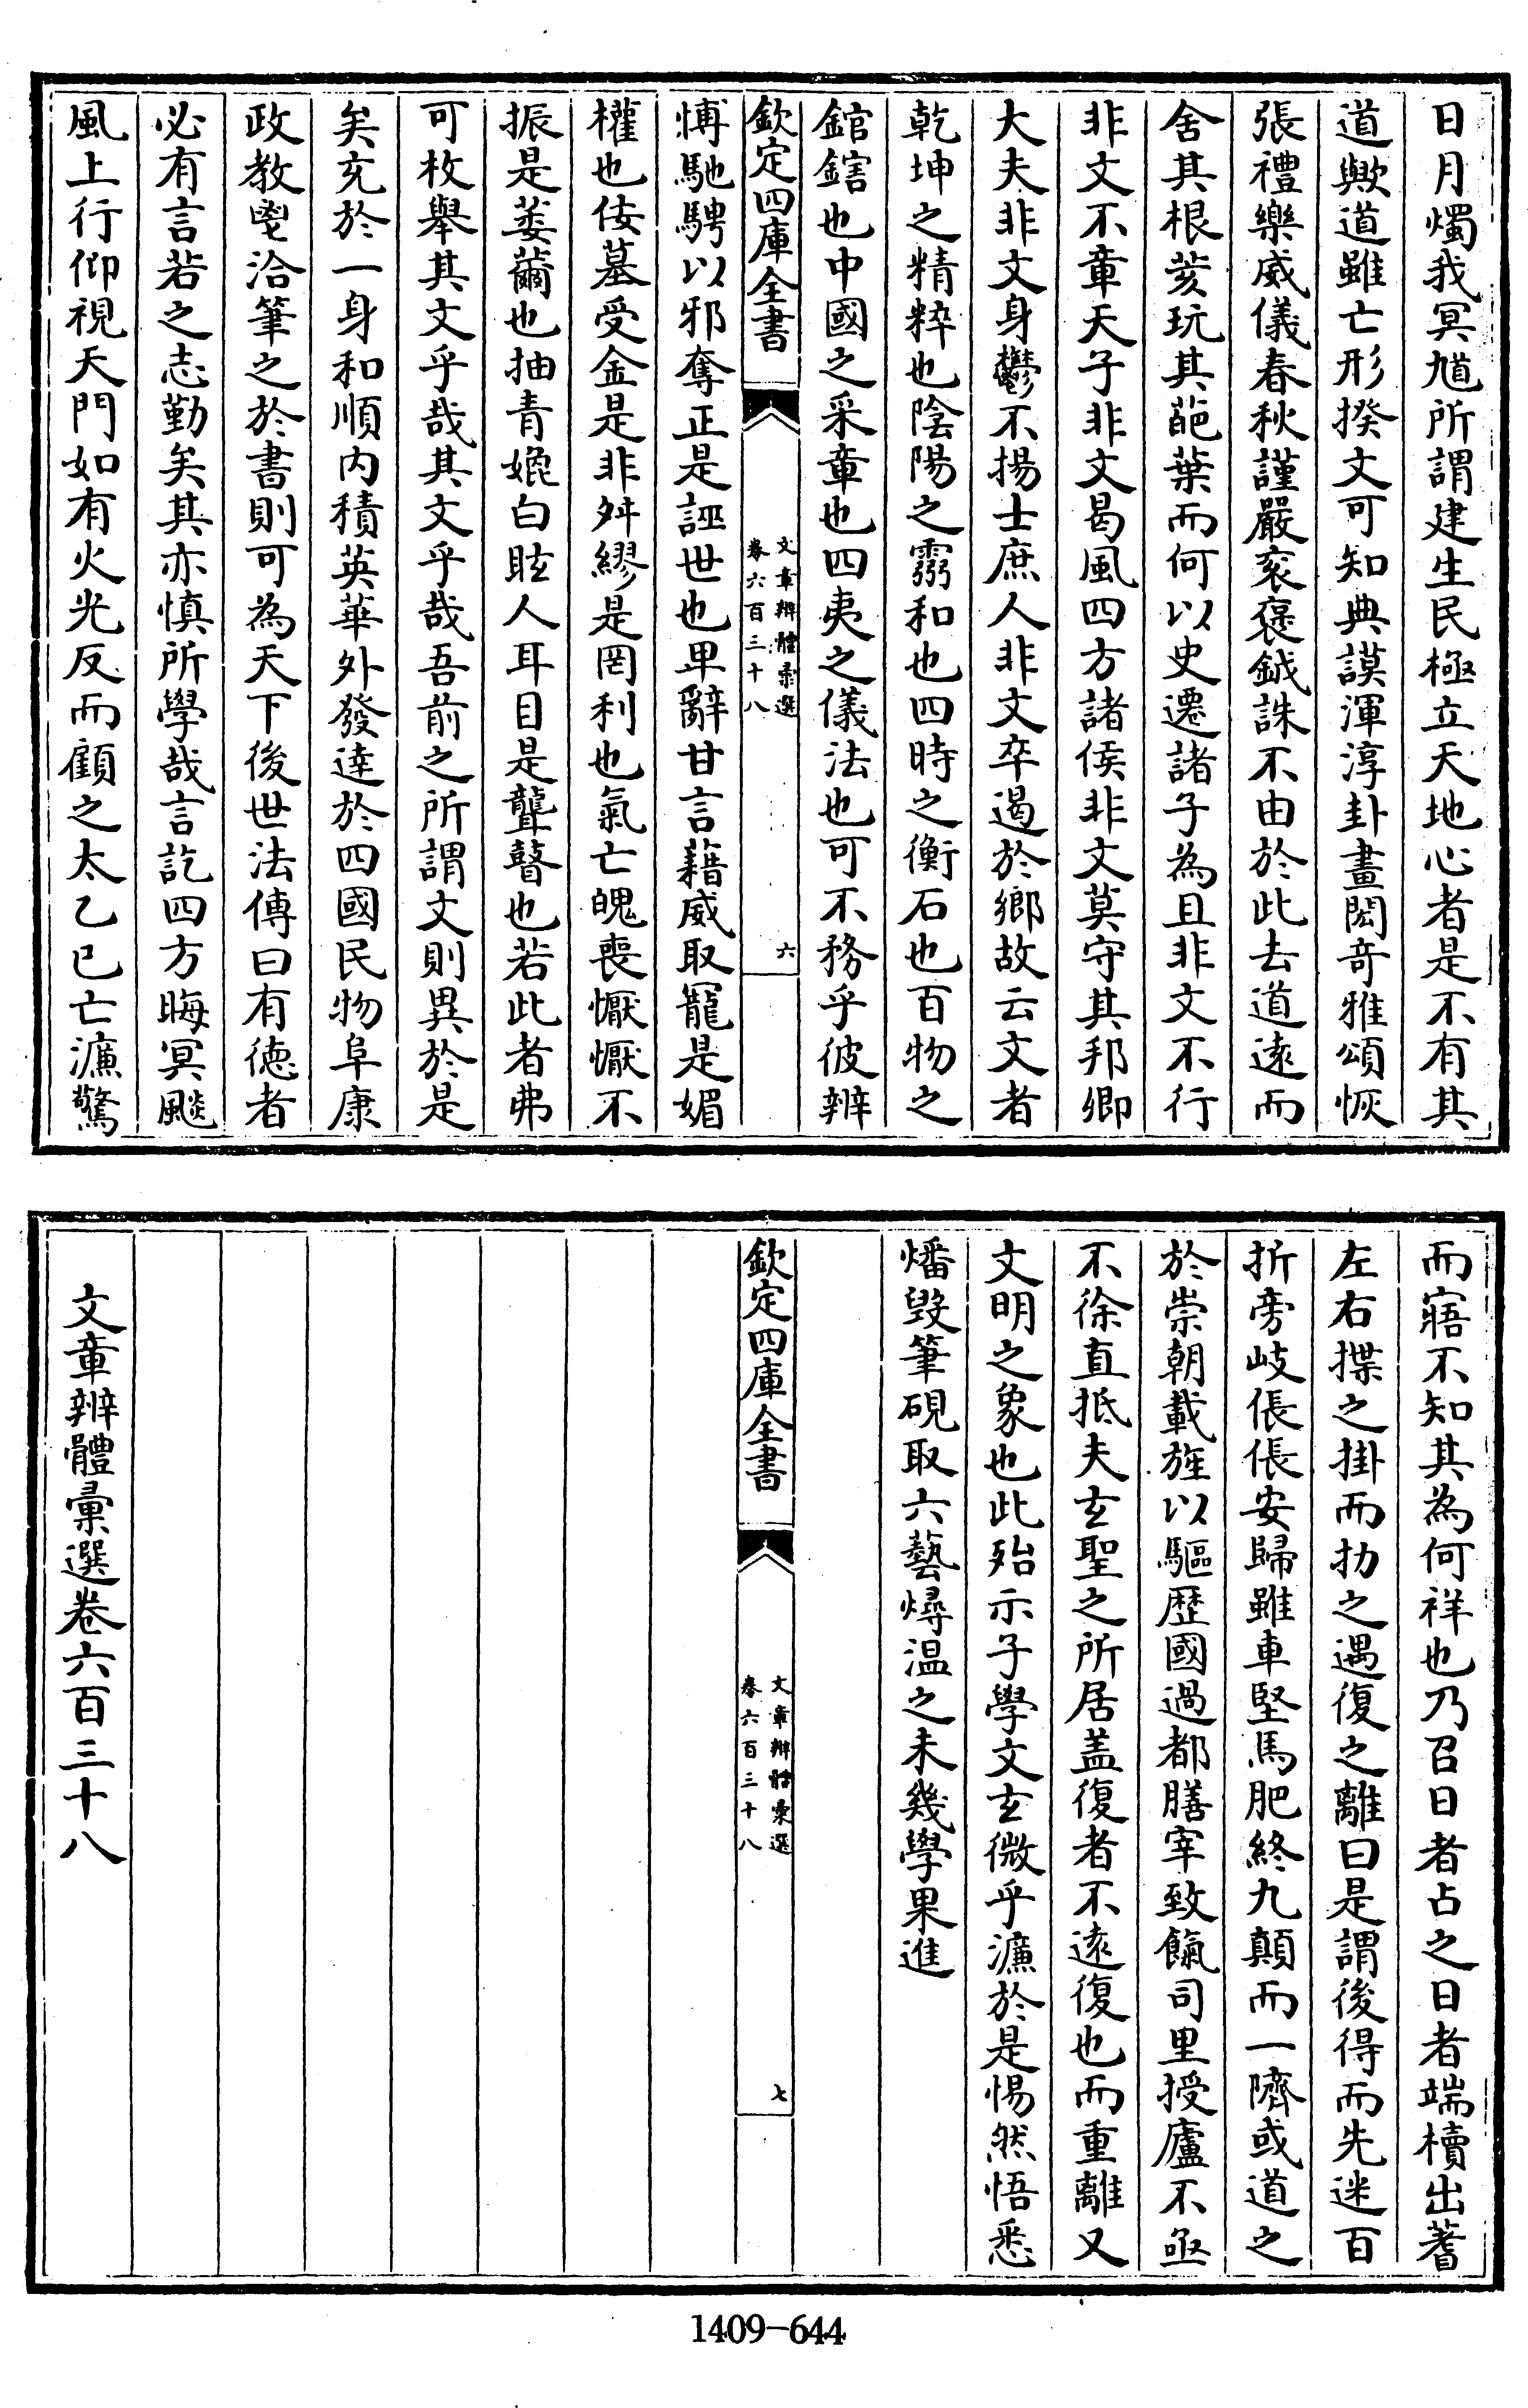 日月燭我冥尵所謂建生民極立天地心者是不有其
道歟道雖亡形揆文可知典謨渾淳卦畫閎奇雅頌恢
張禮樂威儀春秋謹嚴衮褒鉞誅不由於此去道遠而
舍其根荄玩其葩葉而何以史遷諸子為且非文不行
非文不章天子非文曷風四方諸侯非文莫守其邦卿
大夫非文身鬱不揚士庶人非文卒遏於鄉故云文者
乾坤之精粹也陰陽之靈和也四時之衡石也百物之
錧鎋也中國之采章也四夷之儀法也可不務乎彼辨
欽定四庫全書
文章辨體彙選
卷六百三十八
六
博馳騁以邪奪正是誣世也卑辭甘言藉威取寵是媚
權也佞墓受金是非舛繆是罔利也氣亡魄喪懨懨不
振是萎薾也抽青媲白眩人耳目是聾瞽也若此者弗
可枚舉其文乎哉其文乎哉吾前之所謂文則異於是
矣充於一身和順内積英華外發達於四國民物阜康
政教鬯洽筆之於書則可為天下後世法傳曰有德者
必有言若之志勤矣其亦慎所學哉言訖四方晦冥飈
風上行仰視天門如有火光反而顧之太乙已亡濂驚
而寤不知其為何祥也乃召日者占之日者端櫝出蓍
左右揲之掛而扐之遇復之離曰是謂後得而先迷百
折旁岐倀倀安歸雖車堅馬肥終九顛而一隮或道之
於崇朝載旌以驅歷國過都膳宰致餼司里授廬不亟
不徐直抵夫玄聖之所居盖復者不遠復也而重離又
文明之象也此殆示子學文玄微乎濂於是惕然悟悉
燔毀筆硯取六藝燖温之未幾學果進
欽定四庫全書
文章辨體彙選
卷六百三十八
七
文章辨體彙選卷六百三十八
1409-644